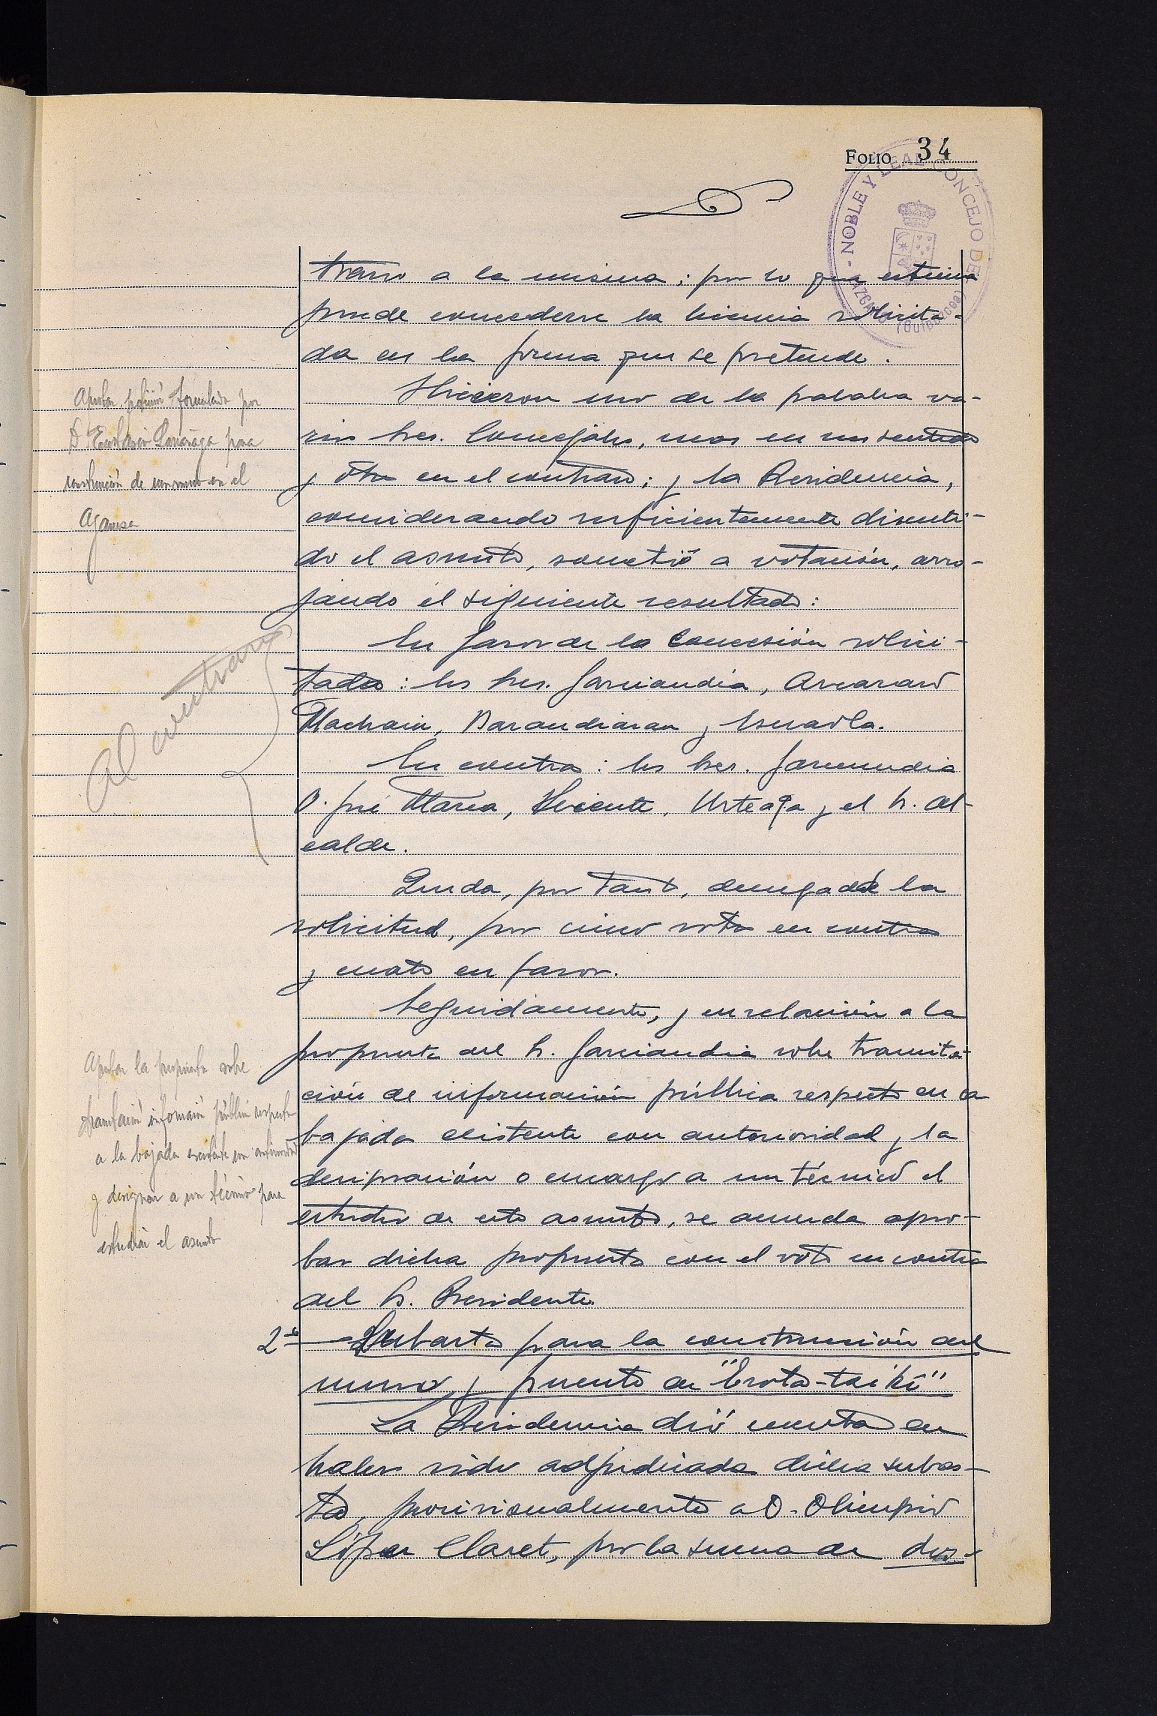 FOLIO 34
NOBLE Y LEAL CONCEJO DE LAZCANO (GUIPUZCOA)
trario a la misma; por lo que estima
puede concederse la licencia solicita-
da en la forma que se pretende.
Hicieron uso de la palabra va-
rios Sres. Concejales, unos en un sentido
y otros en el contrario; y la Presidencia,
considerando suficientemente discuti-
do el asunto, sometió a votación, arro-
jando el siguiente resultado:
En favor de la concesión solici-
tada: los Sres. Garciandia,
Machain, Barandiaran y Esnaola.
En contra: los Sres. Garmendia
D. José María, Vicente, Urteaga y el Sr. Al-
calde.
Queda, por tanto, denegada la
solicitud, por cinco votos en contra
y cuatro en favor.
Seguidamente, y en relación a la
propuesta del Sr. Garciandia sobre tramita-
ción de información pública respecto en la
bajada existente con anterioridad y la
designación o encargo a un técnico el
estudio de este asunto, se acuerda apro-
bar dicha propuesta con el voto en contra
del Sr. Presidente.
2º - Subasta para la construcción del
muro y puente en "Erota-txiki"
La Presidencia dió cuenta de
haber sido adjudicada dicha subas-
ta, provisionalmente a D. Olimpio
López Claret, por la suma de dos-
Aprobar petición formulada por
D. para
construcción de un muro en el
Agauza
Al contrario
Aprobar la propuesta sobre
tramitación información pública respecto
a la bajada existente con anterioridad
y designar a un técnico para
estudiar el asunto